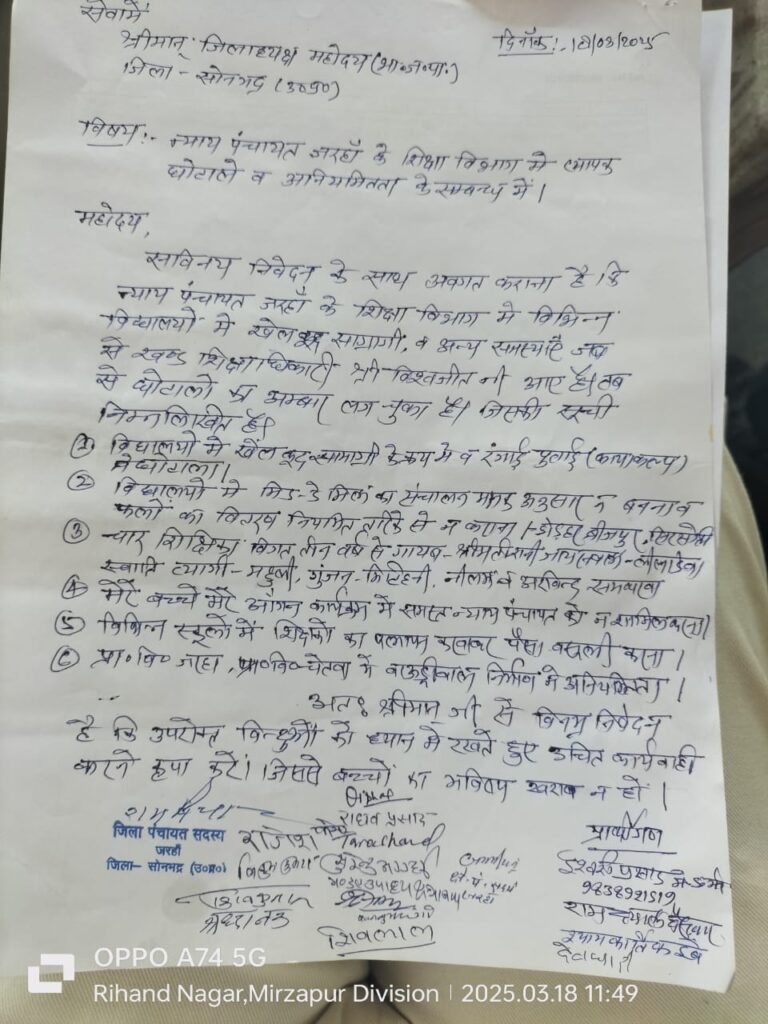 सेवामें
श्रीमान् जिलाध्यक्ष महोदय (भा०ज०पा०) दिनाँक:- 18/03/2025
जिला - सोनभद्र (उ०प्र०)
विषय:- न्याय पंचायत जरहाँ के शिक्षा विभाग मे व्यापक
घोटाले व अनियमितता के सम्बन्ध में।
महोदय,
सविनय निवेदन के साथ अवगत कराना है कि
न्याय पंचायत जरहाँ के शिक्षा विभाग मे विभिन्न
विद्यालयों में खेल कूद सामाग्री, व अन्य समस्याएँ जब
से खण्ड शिक्षा अधिकारी श्री विश्वजीत जी आए है। तब
से घोटालो का अम्बार लग चुका है। जिसकी सूची
निम्नलिखित है।
① विद्यालयो में खेल कूद सामाग्री के क्रय मे व रंगाई पुताई (कायाकल्प)
मे घोटाला।
② विद्यालयो में मिड-डे मिल का संचालन अनुसार न बनना व
फलों का वितरण नियमित तरिके से न कराना। बीजपुर,
③ चार शिक्षिका विगत तीन वर्ष से गायब - श्रीमती
स्वाति त्यागी - , गुंजन - , नीलम व अरविन्द
④ मेरे बच्चे मेरे आँगन कार्यक्रम में समस्त न्याय पंचायत को न शामिल करना।
⑤ विभिन्न स्कूलो में शिक्षको का पलायन करवाकर पैसा वसूली करना।
⑥ प्रा०वि० जरहा, प्रा०वि० चेतवा में बाऊंड्रीवाल निर्माण में अनियमितता।
अतः श्रीमान् जी से विनम्र निवेदन
है कि उपरोक्त बिन्दुओं को ध्यान में रखते हुए उचित कार्यवाही
करने कृपा करें। जिससे बच्चों का भविष्य खराब न हो।
जिला पंचायत सदस्य
जरहाँ
जिला- सोनभद्र (उ०प्र०)
राजेश
Tarachand
शिवलाल
प्रार्थीगण
9838921519
OPPO A74 5G
Rihand Nagar,Mirzapur Division | 2025.03.18 11:49